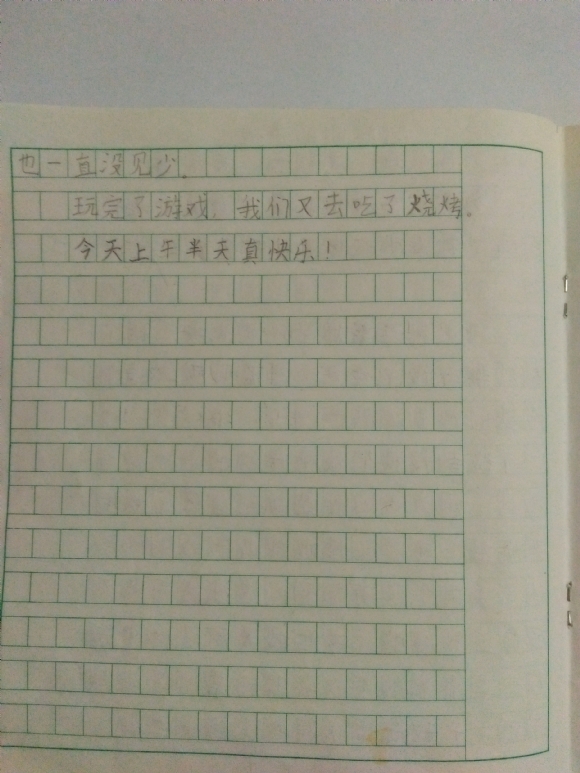 也一直没见少。
玩完了游戏，我们又去吃了烧烤。
今天上午半天真快乐！